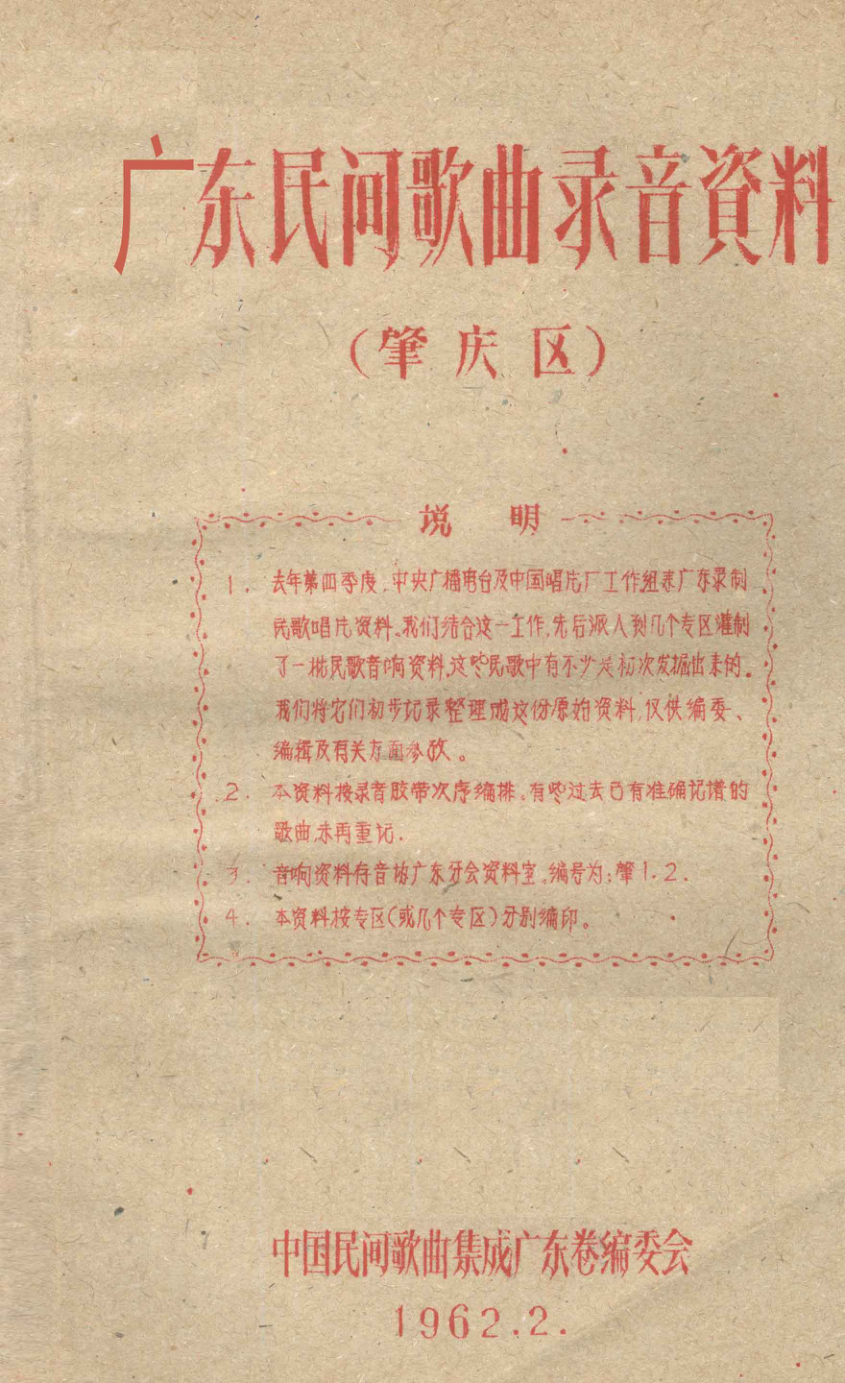 广东民间歌曲录音資料
(肇庆区)
说 明
1. 去年第四季度,中央广播电台及中国唱片厂工作组来广东录制
民歌唱片资料。我们结合这一工作,先后派人到几个专区灌制
了一批民歌音响资料,这些民歌中有不少是初次发掘出来的。
我们将它们初步记录整理成这份原始资料,仅供编委、
编辑及有关方面参攷。
2. 本资料按录音胶带次序编排。有些过去已有准确记谱的
歌曲,未再重记.
3. 音响资料存音协广东分会资料室。编号为:肇1.2.
4. 本资料按专区(或几个专区)分别编印。
中国民间歌曲集成广东卷编委会
1962.2.